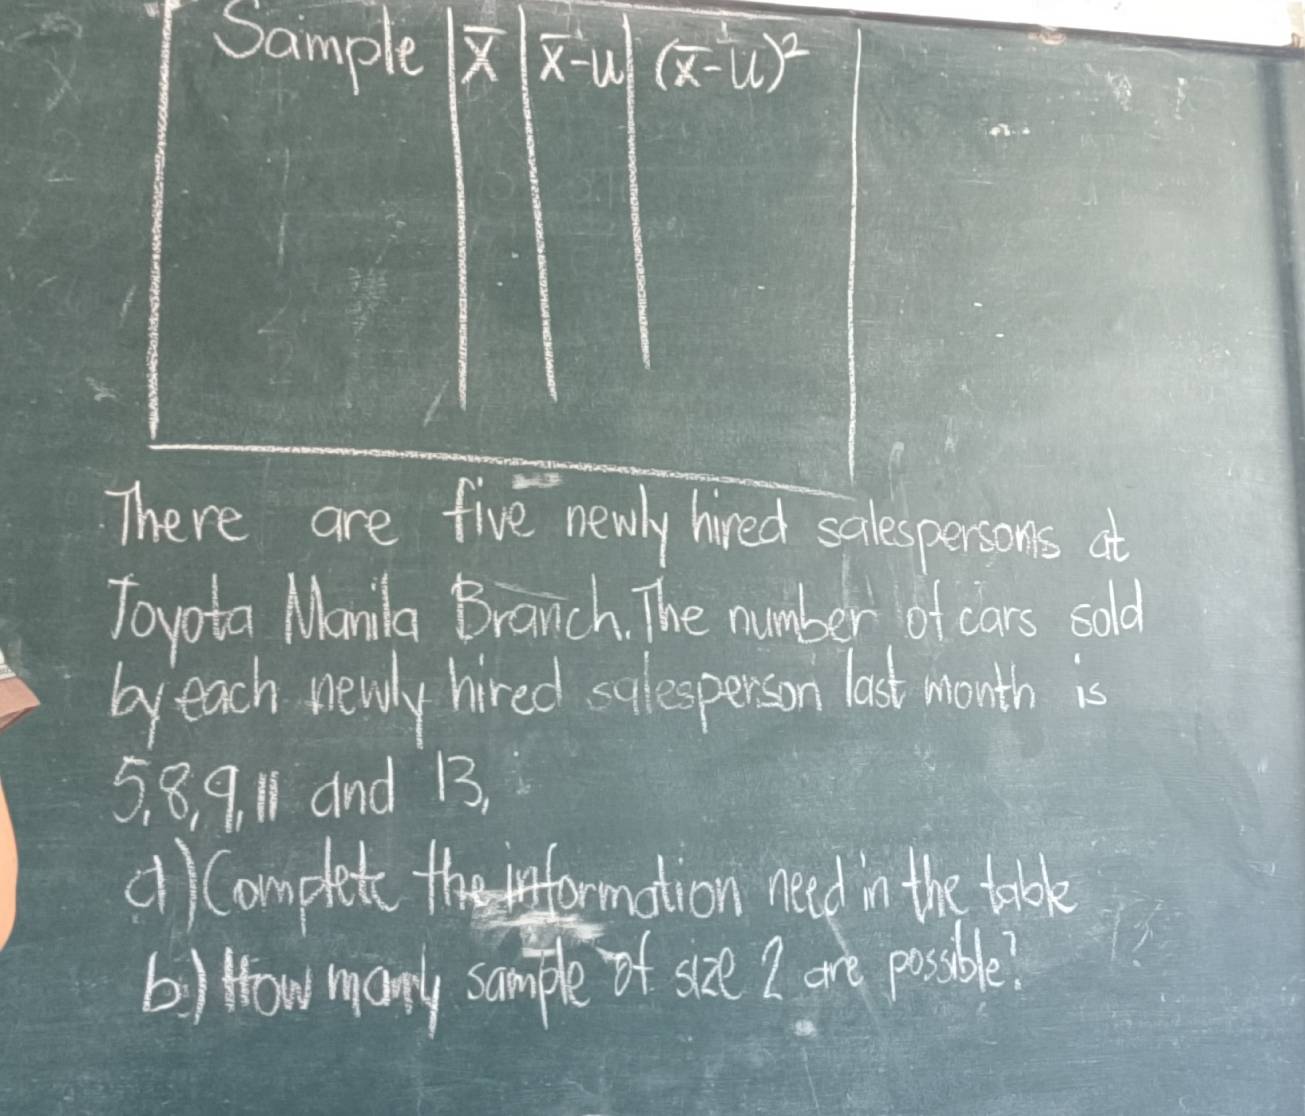 Sample x̄ x̄-u (x̄-u)²
There are five newly hired salespersons at
Toyota Manila Branch. The number of cars sold
by each newly hired salesperson last month is
5,8,9,11 and 13,
a) Complete the information need in the table
b.) How many sample of size 2 are possible?